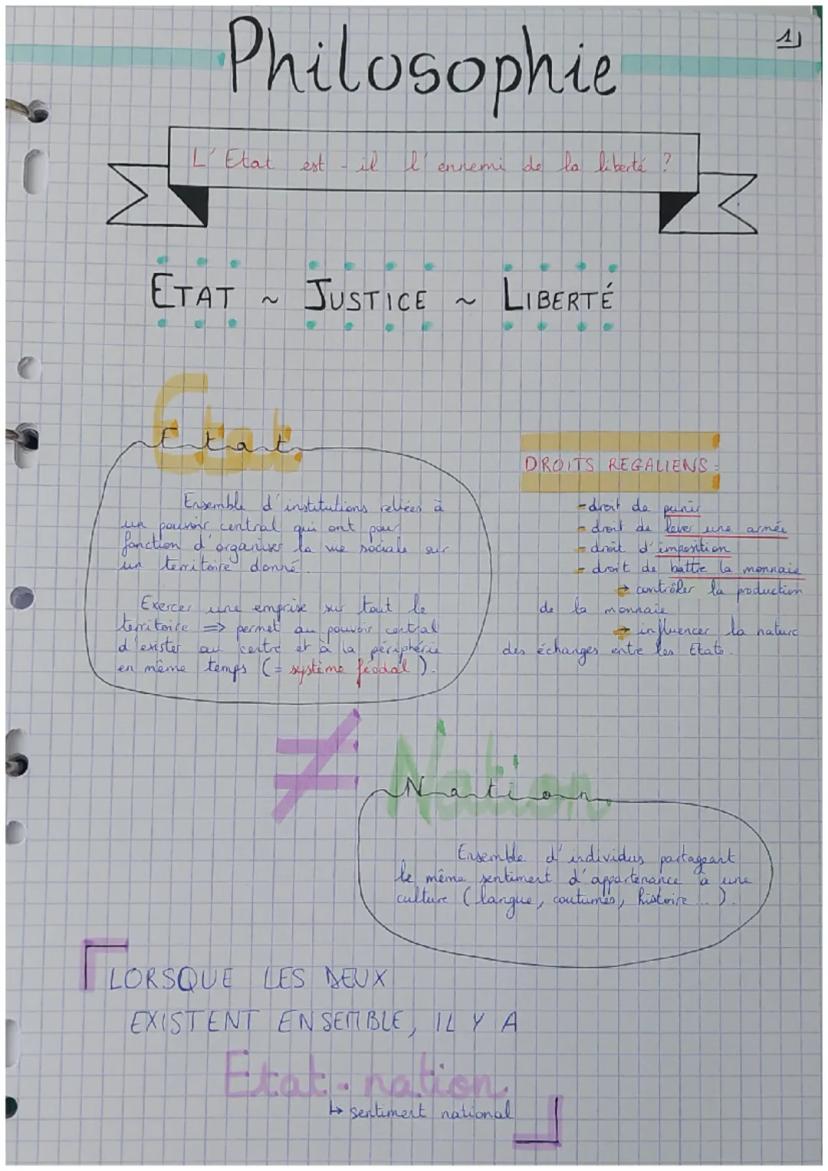 1)
Philosophie
L'Etat est-il l'ennemi de la liberté ?
ETAT ~ JUSTICE ~ LIBERTÉ
Etat
Ensemble d'institutions reliées à
un pouvoir central qui ont pour
fonction d'organiser la vie sociale sur
un territoire donné.
Exercer une emprise sur tout le
territoire => permet au pouvoir central
d'exister au centre et à la périphérie
en même temps (= système féodal).
DROITS REGALIENS :
- droit de punir
- droit de lever une armée
- droit d'imposition
- droit de battre la monnaie
→ contrôler la production
de la monnaie
→ influencer la nature
des échanges entre les Etats.
≠
Nation
Ensemble d'individus partageant
le même sentiment d'appartenance à une
culture (langue, coutumes, histoire...).
LORSQUE LES DEUX
EXISTENT ENSEMBLE, IL Y A
Etat-nation
↳ sentiment national